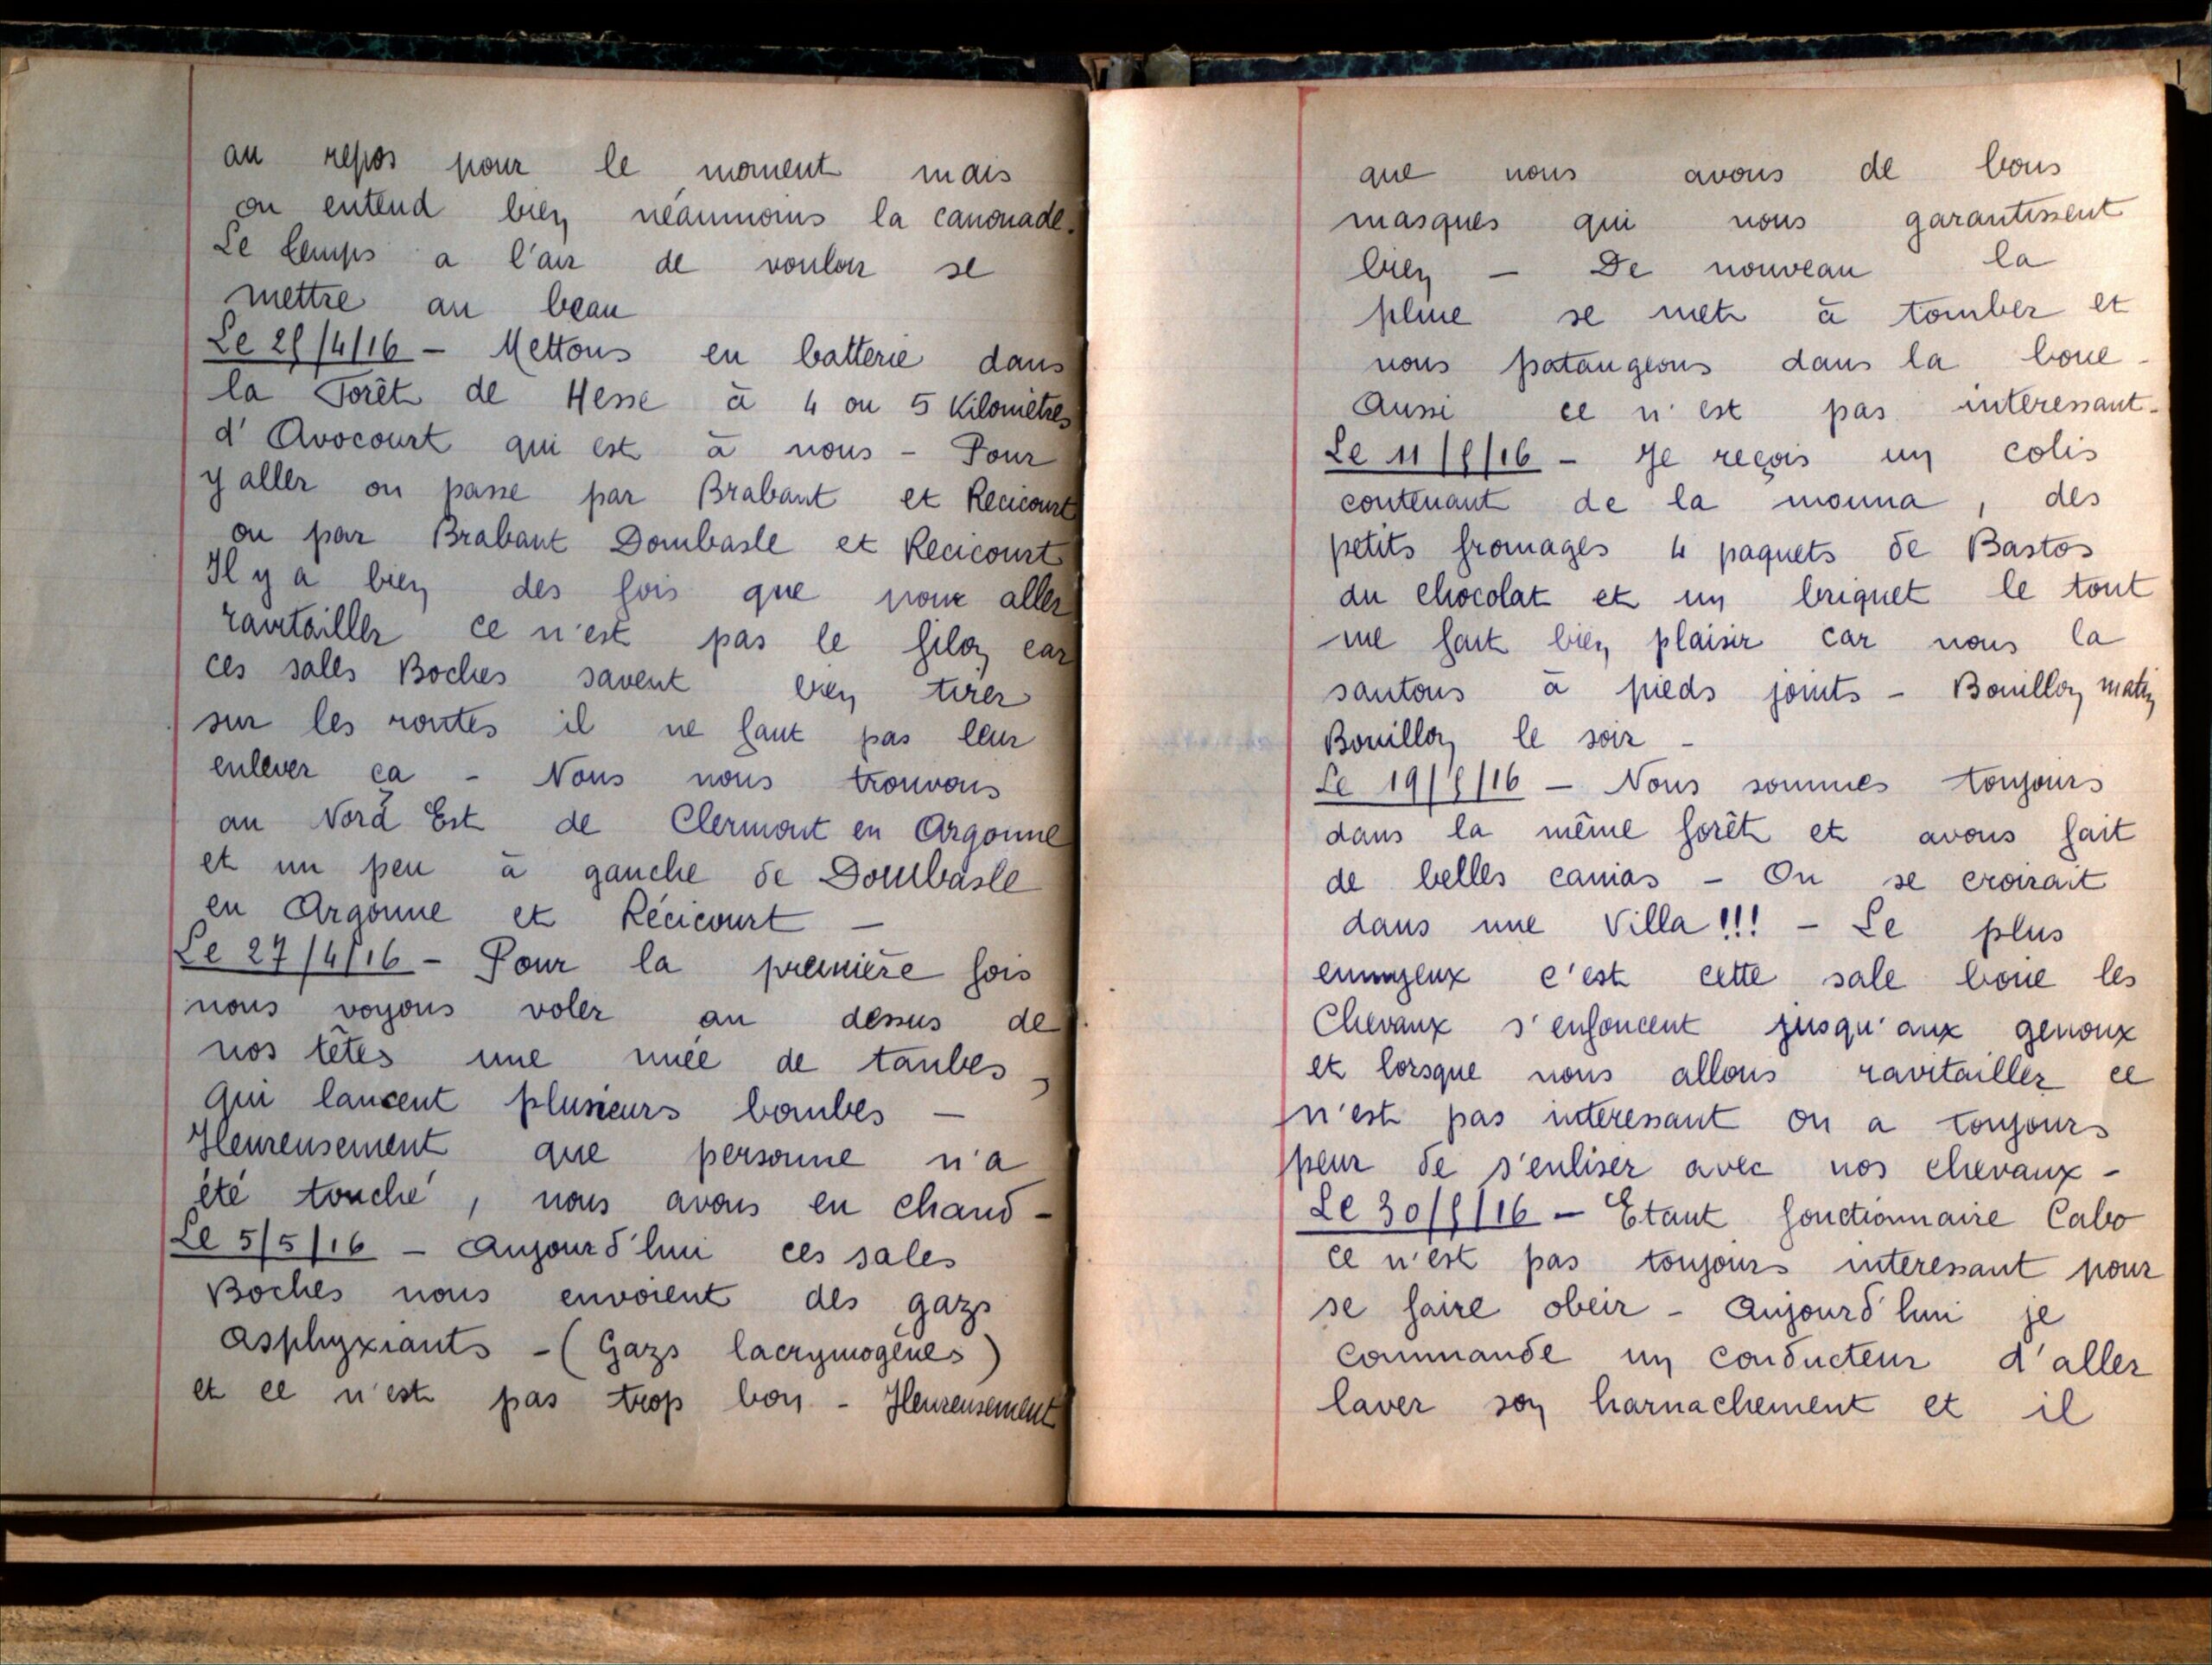 au repos pour le moment mais
on entend bien néanmoins la canonade.
Le temps a l'air de vouloir se
mettre au beau
Le 25/4/16 – Mettons en batterie dans
la Forêt de Hesse à 4 ou 5 Kilomètres
d'Avocourt qui est à nous – Pour
y aller on passe par Brabant et Recicourt
ou par Brabant Dombasle et Recicourt
Il y a bien des fois que pour aller
ravitailler ce n'est pas le filon car
ces sales Boches savent bien tirer
sur les routes il ne faut pas leur
enlever ça – Nous nous trouvons
au Nord Est de Clermont en Argonne
et un peu à gauche de Dombasle
en Argonne et Récicourt –
Le 27/4/16 – Pour la première fois
nous voyons voler au dessus de
nos têtes une nuée de taubes,
qui lancent plusieurs bombes –
Heureusement que personne n'a
été touché, nous avons eu chaud –
Le 5/5/16 – Aujourd'hui ces sales
Boches nous envoient des gazs
asphyxiants – (Gazs lacrymogènes)
et ce n'est pas trop bon – Heureusement
que nous avons de bons
masques qui nous garantissent
bien – De nouveau la
pluie se met à tomber et
nous patangeons dans la boue –
Aussi ce n'est pas interessant –
Le 11/5/16 – Je reçois un colis
contenant de la mouna, des
petits fromages 4 paquets de Bastos
du chocolat et un briquet le tout
me fait bien plaisir car nous la
sautons à pieds joints – Bouillon matin
Bouillon le soir –
Le 19/5/16 – Nous sommes toujours
dans la même forêt et avons fait
de belles canias – On se croirait
dans une Villa!!! – Le plus
ennuyeux c'est cette sale boue les
Chevaux s'enfoncent jusqu'aux genoux
et lorsque nous allons ravitailler ce
n'est pas interessant on a toujours
peur de s'enliser avec nos chevaux –
Le 30/5/16 – Etant fonctionnaire Cabo
ce n'est pas toujours interessant pour
se faire obeir – Aujourd'hui je
commande un conducteur d'aller
laver son harnachement et il